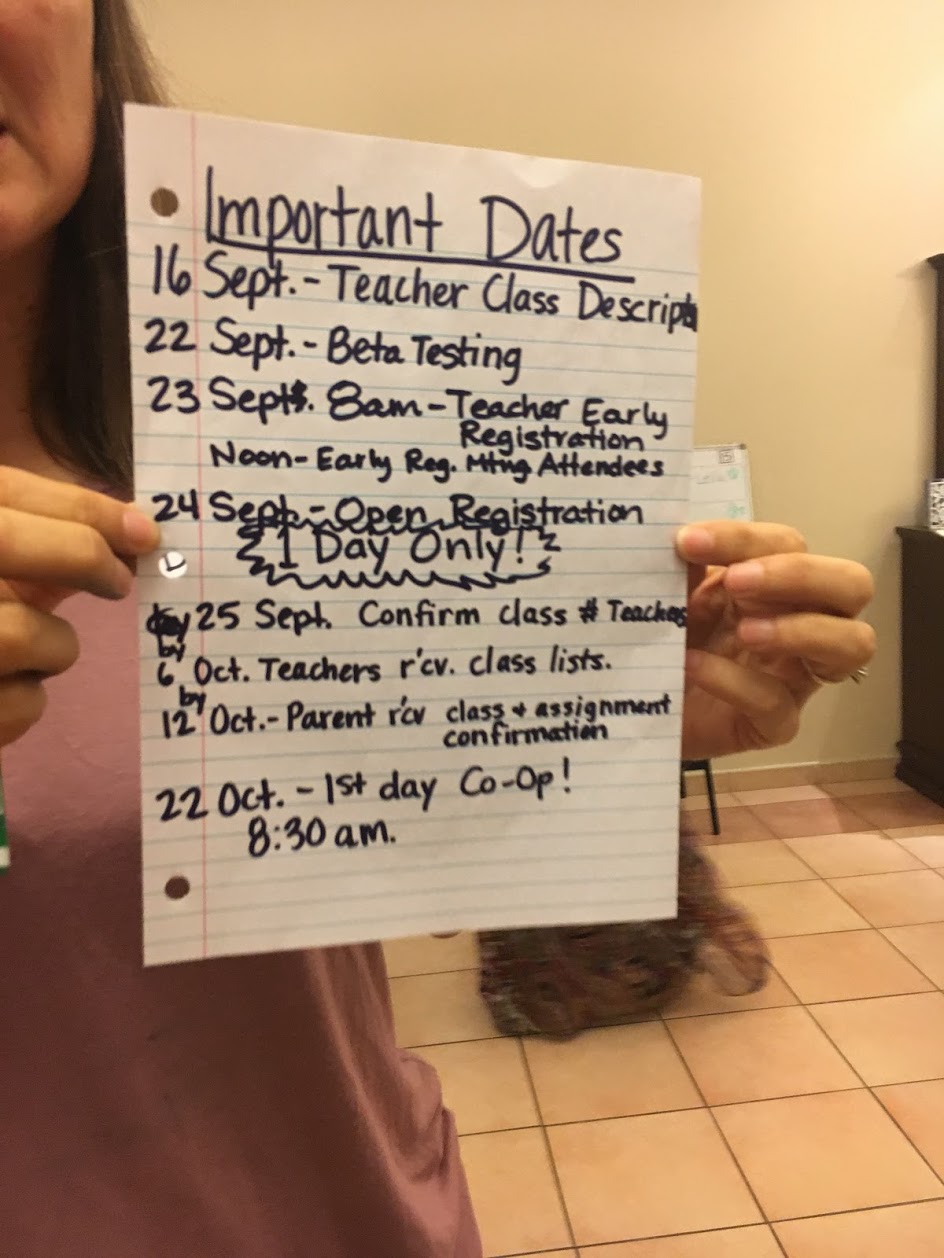 Important Dates
16 Sept. - Teacher Class Descript
22 Sept. - Beta Testing
23 Sept. 8am - Teacher Early
Registration
Noon - Early Reg. Mtng Attendees
24 Sept. - Open Registration
1 Day Only!
by 25 Sept. Confirm class # Teachers
by
6 Oct. Teachers r'cv. class lists.
by
12 Oct. - Parent r'cv class + assignment
confirmation
22 Oct. - 1st day Co-Op!
8:30 am.